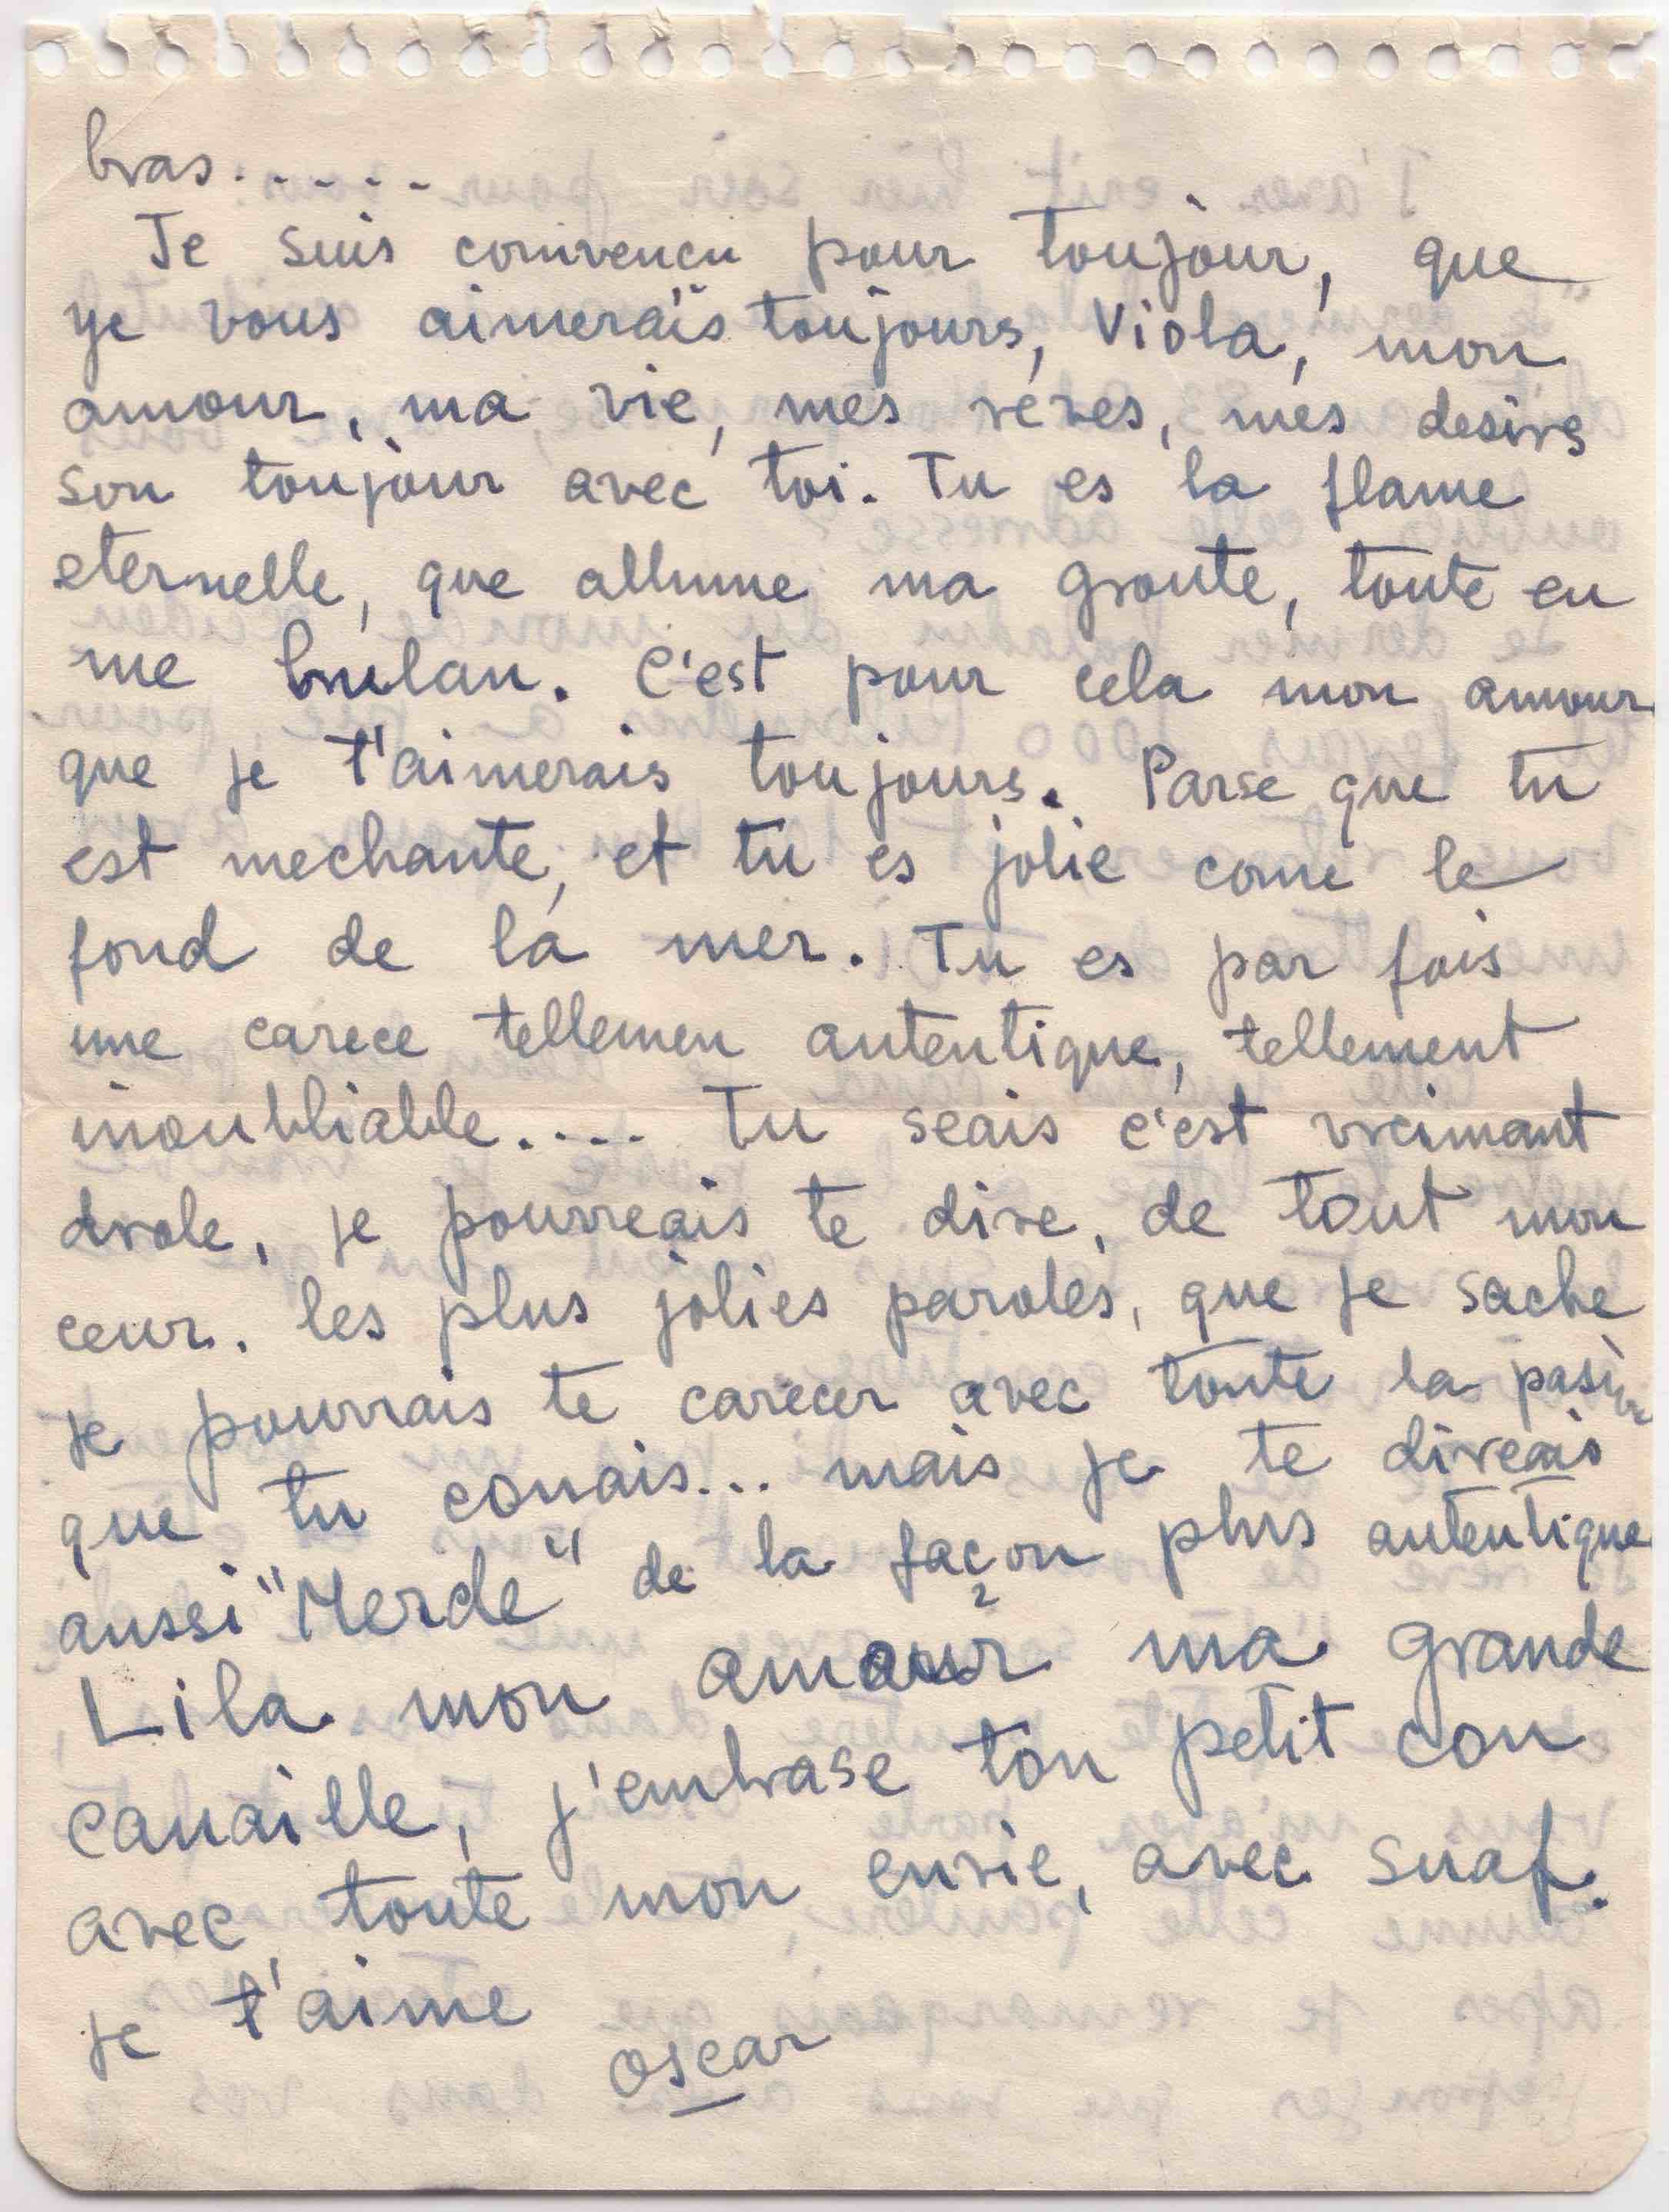 bras.....
Je suis convencu pour toujour, que
ye vous aimerais toujours, Viola, mon
amour, ma vie, mes reves, mes desirs
son toujour avec toi. Tu es la flame
eternelle, que allume ma groute, toute en
me brulan. C'est pour cela mon amour
que je t'aimerais toujours. Parse que tu
est mechante, et tu es jolie come le
fond de la mer. Tu es par fois
une carece tellemen autentique, tellement
inoubliable.... Tu seais c'est vreimant
drole, je pourreais te dire, de tout mon
ceur. les plus jolies paroles, que je sache
je pourrais te carecer avec toute la
que tu conais... mais je te direais
aussi "Merde" de la façon plus autentique
Lila mon amour ma grande
canaille, j'embrase ton petit con
avec toute mon envie, avec suaf.
je t'aime
oscar